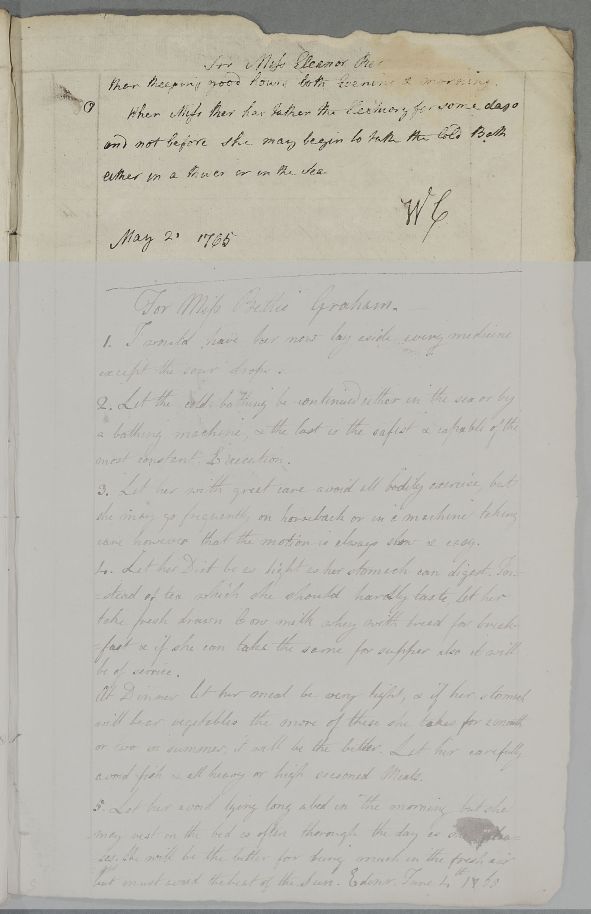 for Miss Eleanor Ker
ther keeping good hours both Evening & morning.
When Miss Ker has taken the Electuary for some days
and not before she may begin to take the Cold Bath
either in a Tower or in the Sea
WC
May 2d 1765
For Miss Bettie Graham.
1. I would have her now lay aside every medicine
except the sour drops.
2. Let the cold bathing be continued either in the sea or by
a bathing machine, & the last is the safest & capable of the
most constant Execution.
3. Let her with great care avoid all bodily exercise, but
she may go frequently on horseback or in a machine taking
care however that the motion is always slow & easy.
4. Let her Diet be as light as her stomach can digest. In-
-stead of tea which she should hardly taste, let her
take fresh drawn Cow milk whey with bread for break-
-fast & if she can take the same for supper also it will
be of service.
At Dinner let her meal be very light, & if her stomach
will bear vegetables the more of these she takes for a month
or two in summer, it will be the better. Let her carefully
avoid fish & all heavy or high seasoned Meats.
5. Let her avoid lying long abed in the morning but she
may rest in the bed as often thorough the day as she
she will be the better for being much in the fresh air
but must avoid the heat of the Sun. Edinr. June 4th